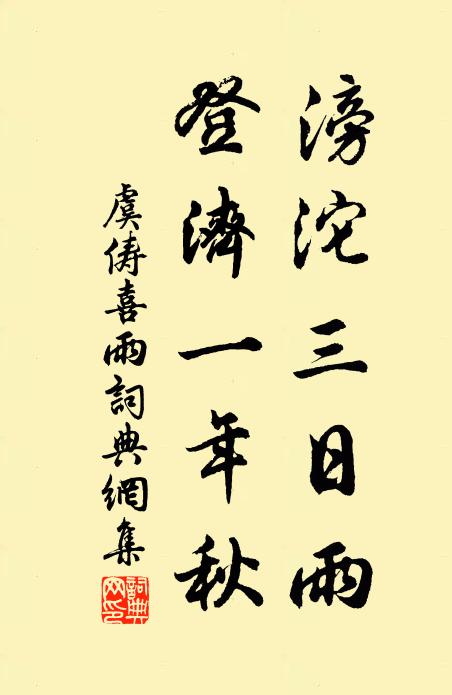 滂沱三日雨
登濟一年秋
虞儔喜雨詞典網集
詞典網印